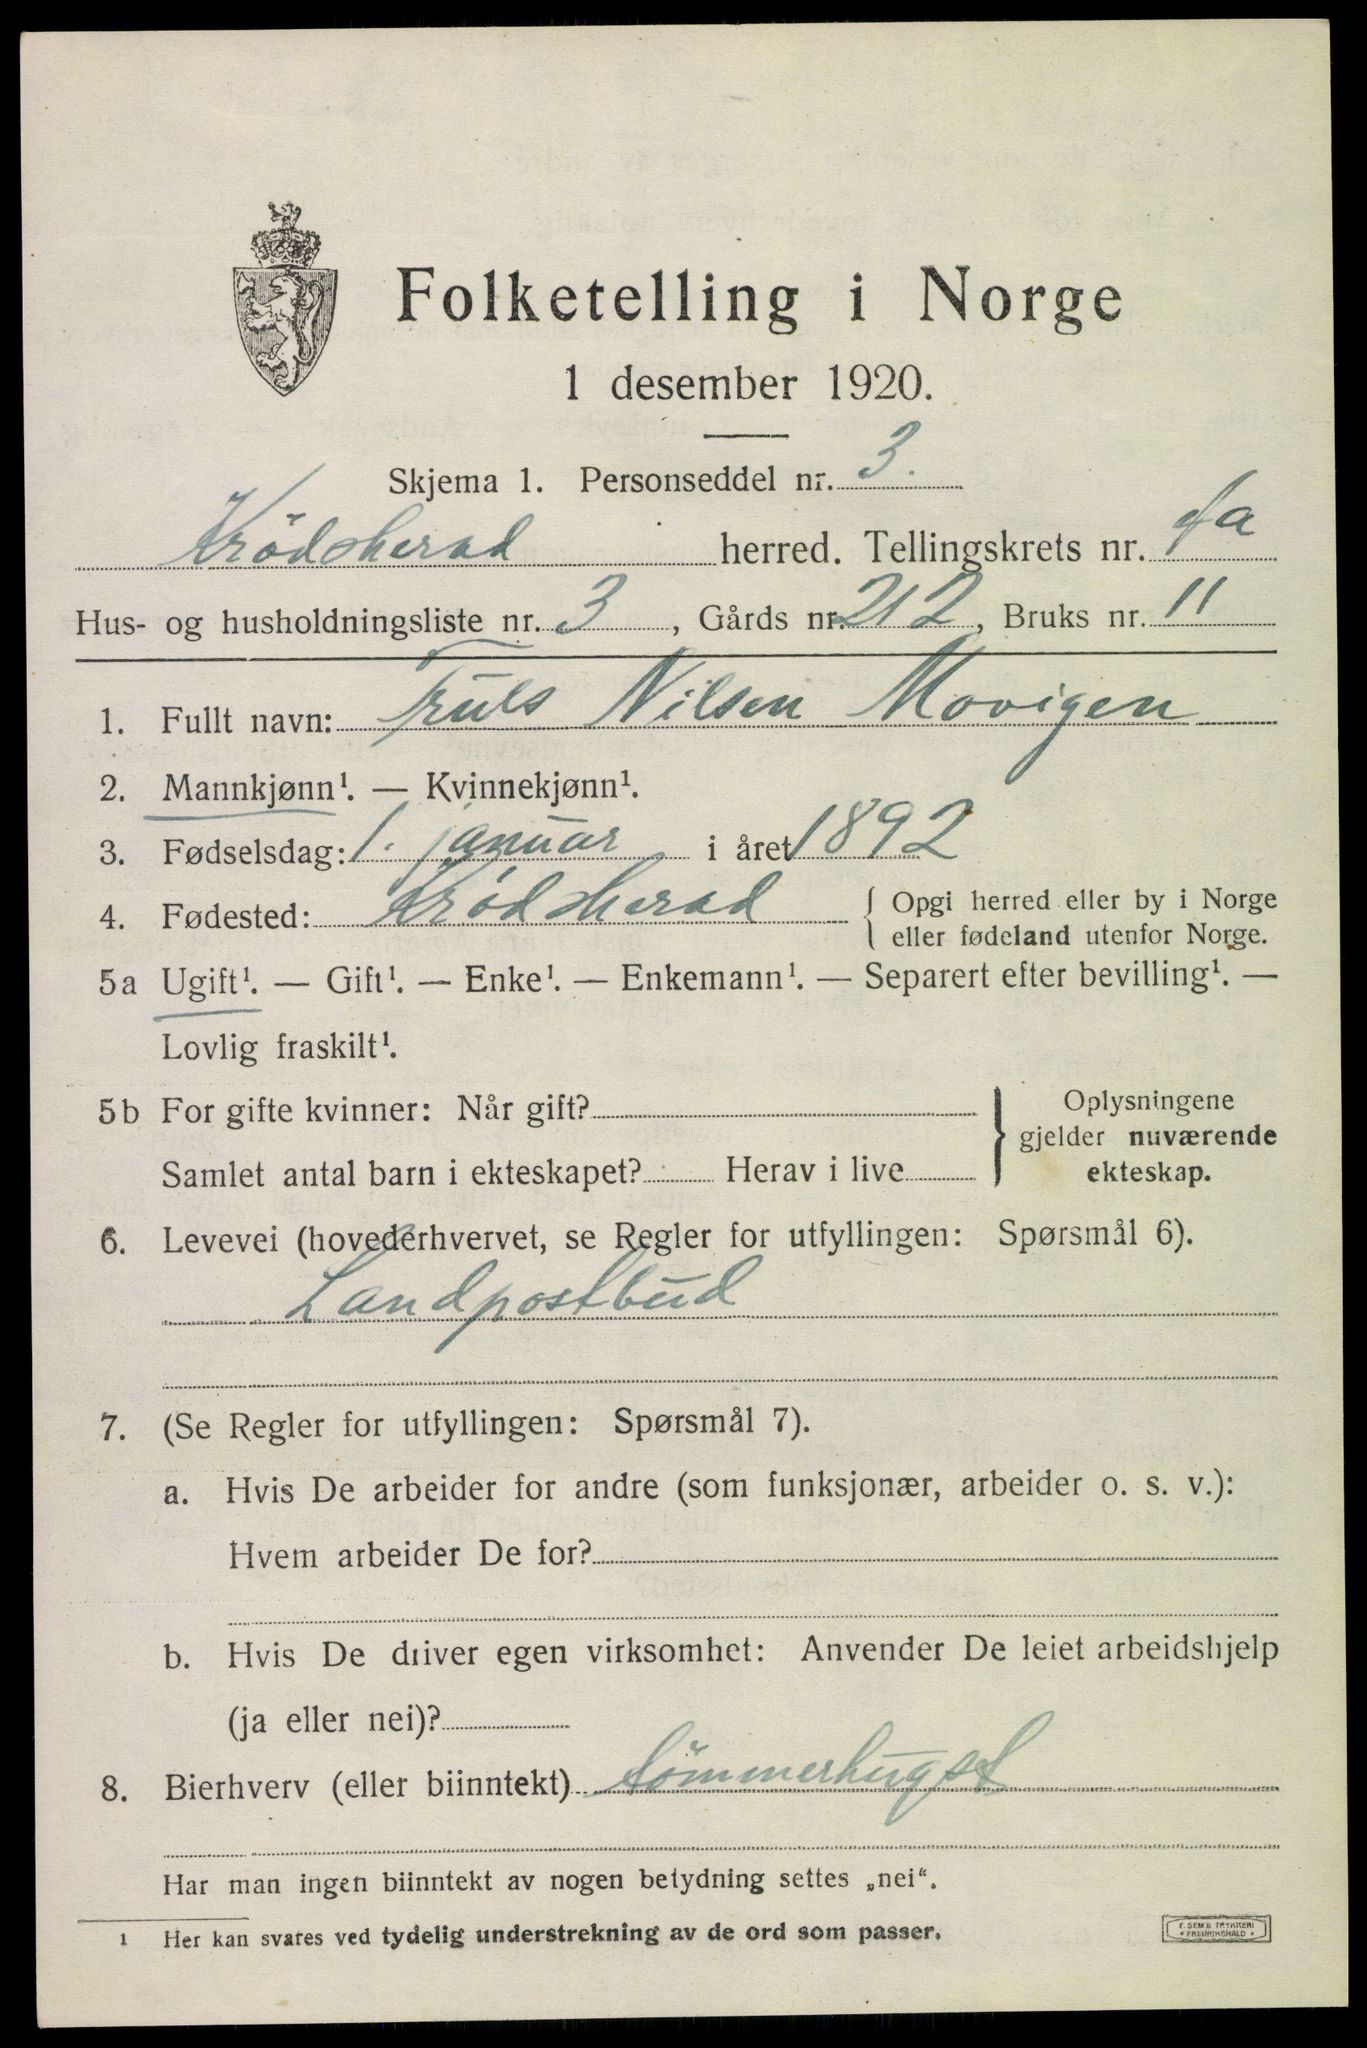 Folketelling i Norge
1 desember 1920.
Skjema 1. Personseddel nr. 3.
Krödsherad herred. Tellingskrets nr.
Hus- og husholdningsliste nr. 3, Gårds nr. 212, Bruks nr. 11
1. Fullt navn: Truls Nilsen Movigen
2. Mannkjønn¹. — Kvinnekjønn¹.
3. Fødselsdag: 1. januar i året 1892
4. Fødested: Krødsherad { Opgi herred eller by i Norge
eller fødeland utenfor Norge.
5a Ugift¹. — Gift¹. — Enke¹. — Enkemann¹. — Separert efter bevilling¹. —
Lovlig fraskilt¹.
5b For gifte kvinner: Når gift? } Oplysningene
gjelder nuværende
Samlet antal barn i ekteskapet? Herav i live
ekteskap.
6. Levevei (hovederhvervet, se Regler for utfyllingen: Spørsmål 6).
Landpostbud
7. (Se Regler for utfyllingen: Spørsmål 7).
a. Hvis De arbeider for andre (som funksjonær, arbeider o. s. v.):
Hvem arbeider De for?
b. Hvis De driver egen virksomhet: Anvender De leiet arbeidshjelp
(ja eller nei)?
8. Bierhverv (eller biinntekt) tömmerhugst
Har man ingen biinntekt av nogen betydning settes „nei“.
1 Her kan svares ved tydelig understrekning av de ord som passer.
E. SEM'S TRYKKERI
• FREDRIKSHALD •